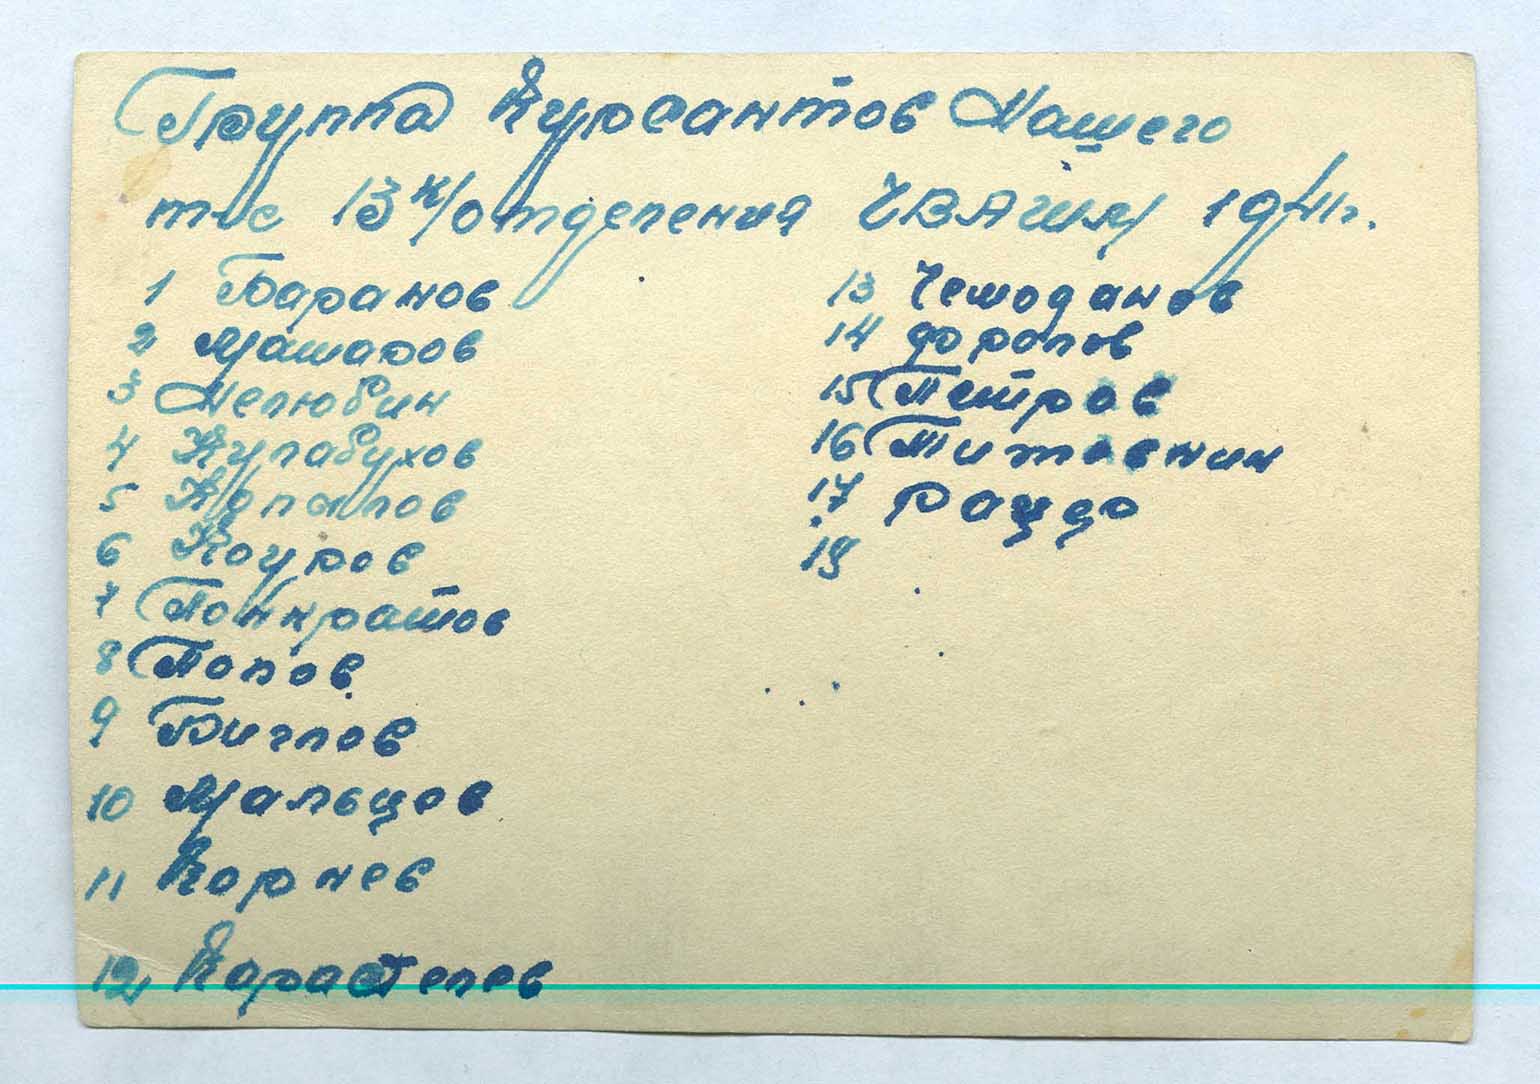 Группа Курсантов Нашего
т-е 13 к/отделения ЧВАШМ 1941г.
1 Баранов
2 Машаров
3 Нелюбин
4 Кулабухов
5 Копалов
6 Коуров
7 Панкратов
8 Попов
9 Биглов
10 Мальцев
11 Корнев
12 Карастелев
13 Чемоданов
14 Фролов
15 Петров
16 Титовнин
17 Рощев
18